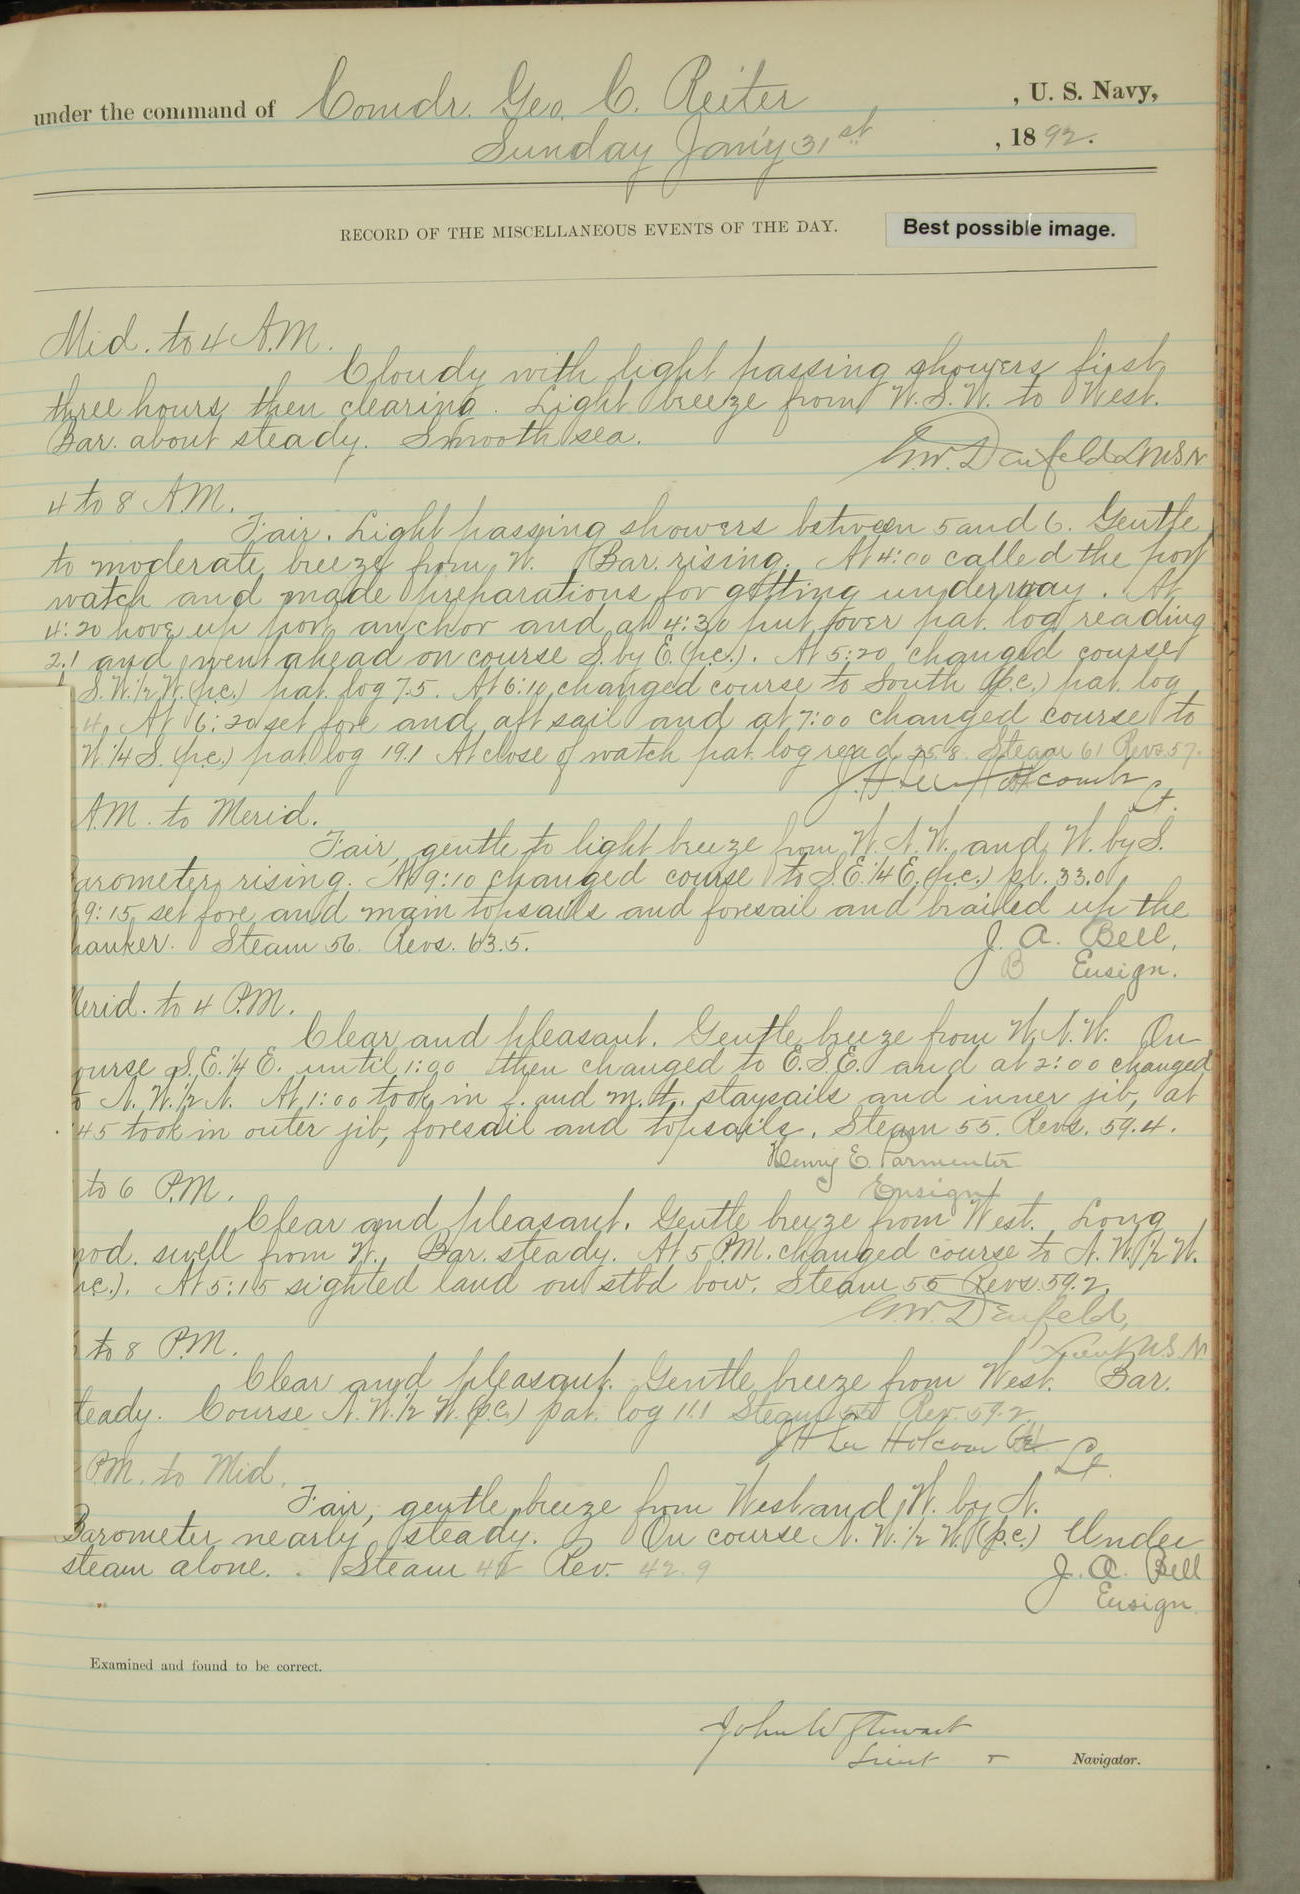 under the command of Comdr. Geo. C. Reiter , U. S. Navy,
Sunday Jan'y 31st , 1892.
RECORD OF THE MISCELLANEOUS EVENTS OF THE DAY.
Best possible image.
Mid. to 4 A.M.
Cloudy with light passing showers first
three hours then clearing. Light breeze from W.S.W. to West.
Bar. about steady. Smooth sea.
G.W. Denfeld Lt U.S.N
4 to 8 A.M.
Fair. Light passing showers between 5 and 6. Gentle
to moderate breeze from W. Bar. rising. At 4:00 called the port
watch and made preparations for getting underway. At
4:20 hove up port anchor and at 4:30 put over pat. log reading
2.1 and went ahead on course S. by E. (p.c.). At 5:20 changed course
S.W.1/2 W. (p.c.) pat. log 7.5. At 6:10 changed course to South (p.c.) pat. log
4. At 6:20 set fore and aft sail and at 7:00 changed course to
W.1/4 S. (p.c.) pat log 19.1 At close of watch pat. log read 25.8. Steam 61 Revs. 57.
J. H. Lee Holcomb
Lt.
A.M. to Merid.
Fair, gentle to light breeze from W.N.W. and W. by S.
arometer rising. At 9:10 changed course to S.E.1/4 E. (p.c.) p.l. 33.0
9:15 set fore and main topsails and foresail and brailed up the
panker. Steam 56. Revs. 63.5.
J. A. Bell,
B Ensign.
erid. to 4 P.M.
Clear and pleasant. Gentle breeze from W.N.W. On
ourse S.E.1/4 E. until 1:00 then changed to E.S.E. and at 2:00 changed
to N.W.1/2 N. At 1:00 took in f. and m.t. staysails and inner jib, at
45 took in outer jib, foresail and topsails. Steam 55. Revs. 59.4.
Henry E. Parmenter
Ensign
to 6 P.M.
Clear and pleasant. Gentle breeze from West. Long
mod. swell from W. Bar. steady. At 5 P.M. changed course to N.W.1/2 W.
p.c.). At 5:15 sighted land on stbd bow. Steam 55 Revs. 59.2.
G.W. Denfeld,
Lieut U.S.N
to 8 P.M.
Clear and pleasant. Gentle breeze from West. Bar.
teady. Course N.W.1/2 W. (p.c.) pat. log 11.1 Steam 55 Rev. 59.2
J H Lee Holcomb
Lt.
P.M. to Mid.
Fair, gentle breeze from West and W. by N.
Barometer nearly steady. On course N.W.1/2 W. (p.c.) Under
steam alone. Steam Rev. 42.9
J. A. Bell
Ensign.
Examined and found to be correct.
John W Stewart
Lieut Navigator.